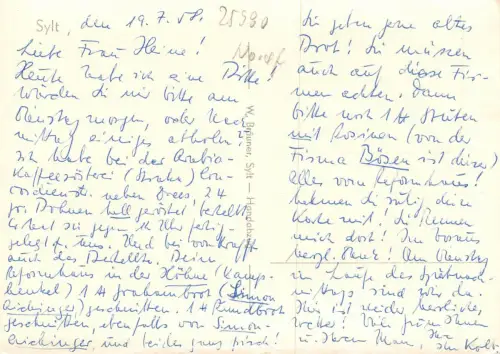 Sylt, den 19.7.58.
25980
Liebe Frau Heine!
Heute habe ich eine Bitte!
Würden Sie mir bitte am
Dienstagmorgen, oder Nach
mittag einiges abholen:
ich habe bei der Arabia-
Kaffeerösterei
neben Drees, 2 ℔
hell geröstet bestellt.
Es liegt sie gegen 11 Uhr fertig-
gelegt f. uns. Und bei von Krafft
auch das Bestellte. Beim
Reformhaus in der Höhne (Kamps-
henkel) 1 ℔ Grahambrot (Simon
Aichinger) geschnitten. 1 ℔ Rundbrot
geschnitten, ebenfalls von Simon-
Aichinger, und beides ganz frisch!
W. Bleicher, Sylt —
Sie geben gerne altes
Brot! Sie müssen
auch auf diese Fir-
men achten. Dann
bitte noch 1 ℔ Stuten
mit Rosinen (von der
Firma Bösen ist dieser)
Alles vom Reformhaus!
nehmen Sie ruhig diese
Karte mit! Sie kennen
mich dort! Im voraus
herzl. Dank! Am Dienstag
im Laufe des Spätnach-
mittags sind wir da.
Hier ist wieder herrliches
Wetter! Viele Grüße Ihnen
u. Ihrem Mann, Ihre